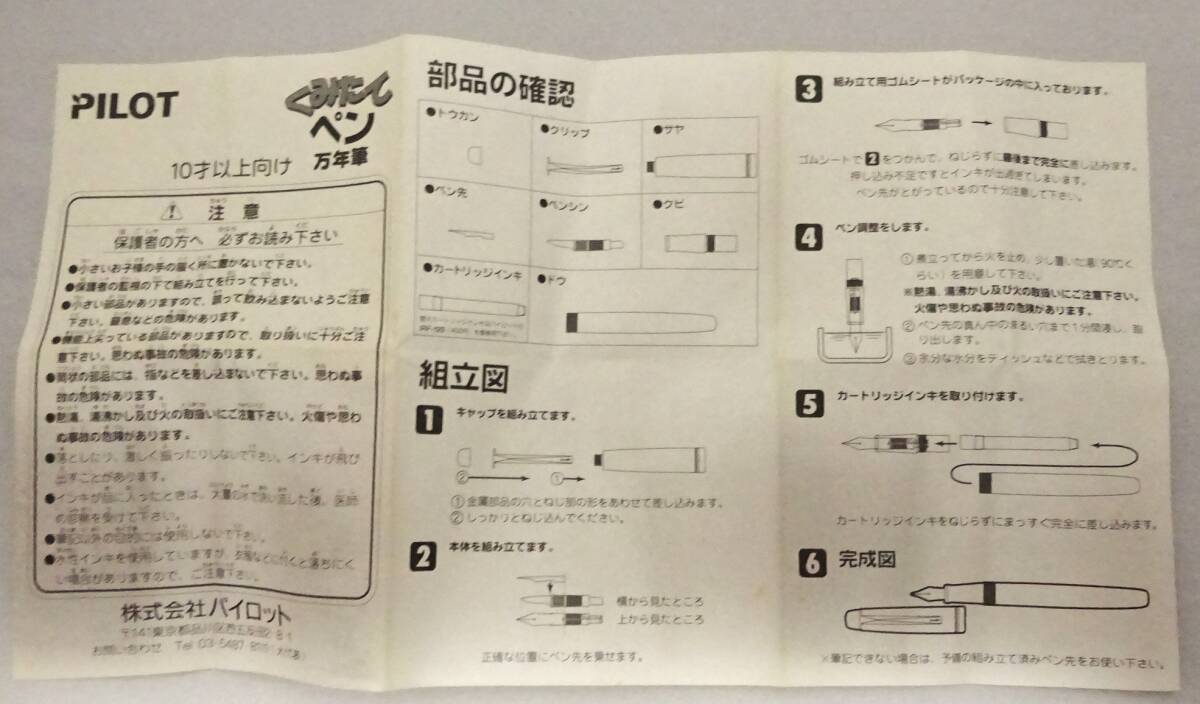 PILOT
くみたて
ペン
万年筆
10才以上向け
注意
保護者の方へ 必ずお読み下さい
●小さいお子様の手の届く所に置かないで下さい。
●保護者の監視の下で組み立てを行って下さい。
●小さい部品がありますので、誤って飲み込まないようご注意
下さい。窒息などの危険があります。
●機能上尖っている部品がありますので、取り扱いに十分ご注
意下さい。思わぬ事故の危険があります。
●筒状の部品には、指などを差し込まないで下さい。思わぬ事
故の危険があります。
●熱湯、湯沸かし及び火の取扱いにご注意下さい。火傷や思わ
ぬ事故の危険があります。
●落としたり、激しく振ったりしないで下さい。インキが飛び
出すことがあります。
●インキが目に入ったときは、大量の水で洗い流した後、医師
の診察を受けて下さい。
●筆記以外の目的には使用しないで下さい。
●水性インキを使用していますが、衣服などに付くと落ちにく
い場合がありますので、ご注意下さい。
株式会社パイロット
〒141東京都品川区西五反田2-8-1
お問い合わせ Tel 03-5487-(大代表)
部品の確認
●トウカン
●クリップ
●サヤ
●ペン先
●ペンシン
●クビ
●カートリッジインキ
●ドウ
組立図
1 キャップを組み立てます。
② ①
①金属部品の穴とねじ部の形をあわせて差し込みます。
②しっかりとねじ込んでください。
2 本体を組み立てます。
横から見たところ
上から見たところ
正確な位置にペン先を乗せます。
3 組み立て用ゴムシートがパッケージの中に入っております。
ゴムシートで2をつかんで、ねじらずに最後まで完全に差し込みます。
押し込み不足ですとインキが出過ぎてしまいます。
ペン先がとがっているので十分注意して下さい。
4 ペン調整をします。
①煮立ってから火を止め、少し置いた湯(90℃く
らい)を用意して下さい。
※熱湯、湯沸かし及び火の取扱いにご注意下さい。
火傷や思わぬ事故の危険があります。
②ペン先の真ん中の丸い穴まで1分間浸し、取
り出します。
③余分な水分をティッシュなどで拭きとります。
5 カートリッジインキを取り付けます。
カートリッジインキをねじらずにまっすぐ完全に差し込みます。
6 完成図
※筆記できない場合は、予備の組み立て済みペン先をお使い下さい。